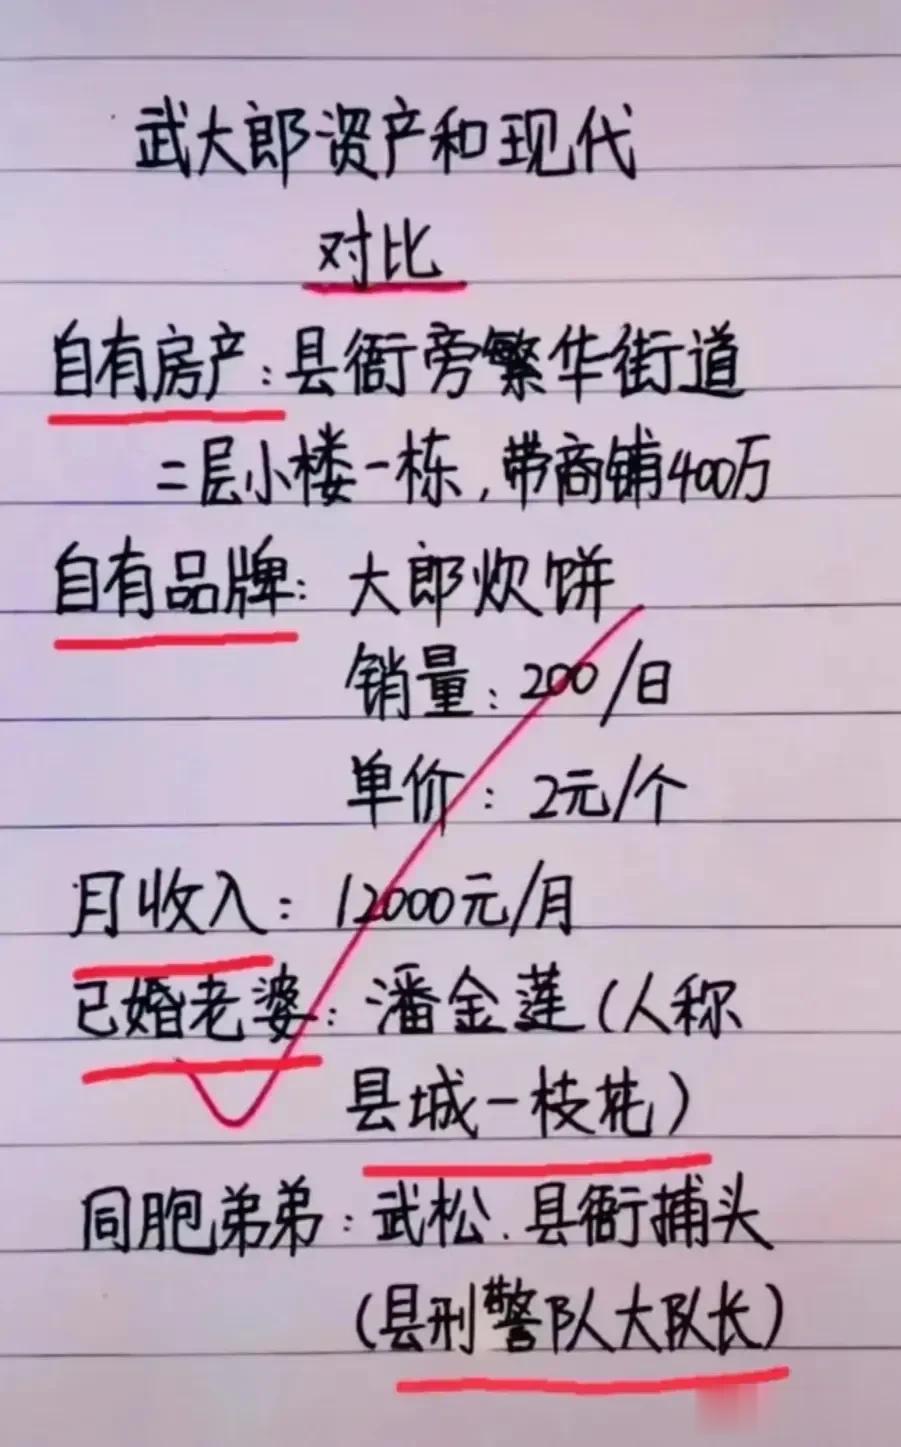 武大郎资产和现代
对比
自有房产:县衙旁繁华街道
二层小楼一栋,带商铺400万
自有品牌:大郎炊饼
销量:200/日
单价:2元/个
月收入:12000元/月
已婚老婆:潘金莲(人称
县城一枝花)
同胞弟弟:武松.县衙捕头
(县刑警队大队长)